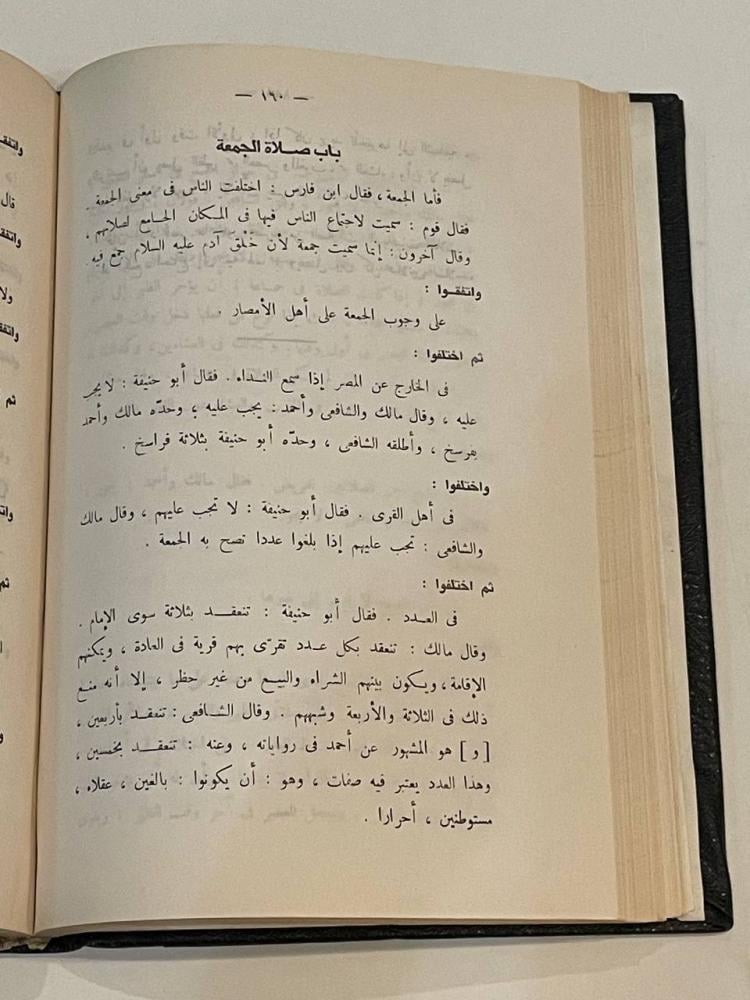 — ١٦٠ —
باب صلاة الجمعة
فأما الجمعة ، فقال ابن فارس : اختلفت الناس فى معنى الجمعة .
فقال قوم : سميت لاجتماع الناس فيها فى المكان الجامع لصلاتهم ،
وقال آخرون : إنما سميت جمعة لأن خَلْقَ آدم عليه السلام جمع فيه .
واتفقوا :
على وجوب الجمعة على أهل الأمصار .
ثم اختلفوا :
فى الخارج عن المصر إذا سمع النداء . فقال أبو حنيفة : لا يجب
عليه ، وقال مالك والشافعى وأحمد : يجب عليه ، وحدّه مالك وأحمد
بفرسخ ، وأطلقه الشافعى ، وحدّه أبو حنيفة بثلاثة فراسخ .
واختلفوا :
فى أهل القرى . فقال أبو حنيفة : لا تجب عليهم ، وقال مالك
والشافعى : تجب عليهم إذا بلغوا عددا تصح به الجمعة .
ثم اختلفوا :
فى العدد . فقال أبو حنيفة : تنعقد بثلاثة سوى الإمام .
وقال مالك : تنعقد بكل عدد تقرّى بهم قرية فى العادة ، ويمكنهم
الإقامة ، ويكون بينهم الشراء والبيع من غير حظر ، إلا أنه منع
ذلك فى الثلاثة والأربعة وشبههم . وقال الشافعى : تنعقد بأربعين ،
[ و ] هو المشهور عن أحمد فى رواياته ، وعنه : تنعقد بخمسين ،
وهذا العدد يعتبر فيه صفات ، وهو : أن يكونوا : بالغين ، عقلاء ،
مستوطنين ، أحرارا .